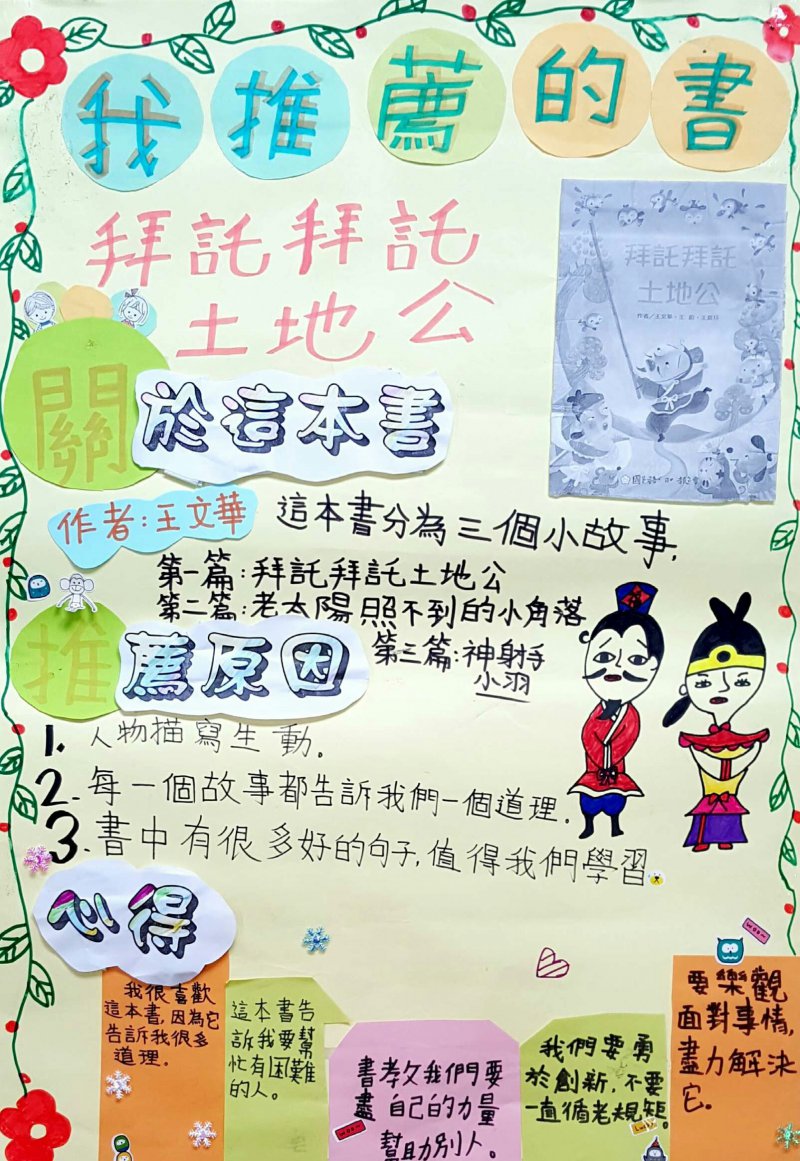 我推薦的書
拜託拜託
土地公
拜託拜託
土地公
關於這本書
作者:王文華
這本書分為三個小故事,
第一篇:拜託拜託土地公
第二篇:老太陽照不到的小角落
第三篇:神射手
小羽
推薦原因
1. 人物描寫生動.
2. 每一個故事都告訴我們一個道理.
3. 書中有很多好的句子,值得我們學習
心得
我很喜歡
這本書,因為它
告訴我很多
道理。
這本書告
訴我要幫
忙有困難
的人。
書教我們要
盡自己的力量
幫助別人。
我們要勇
於創新,不要
一直循老規矩。
要樂觀
面對事情,
盡力解決
它。